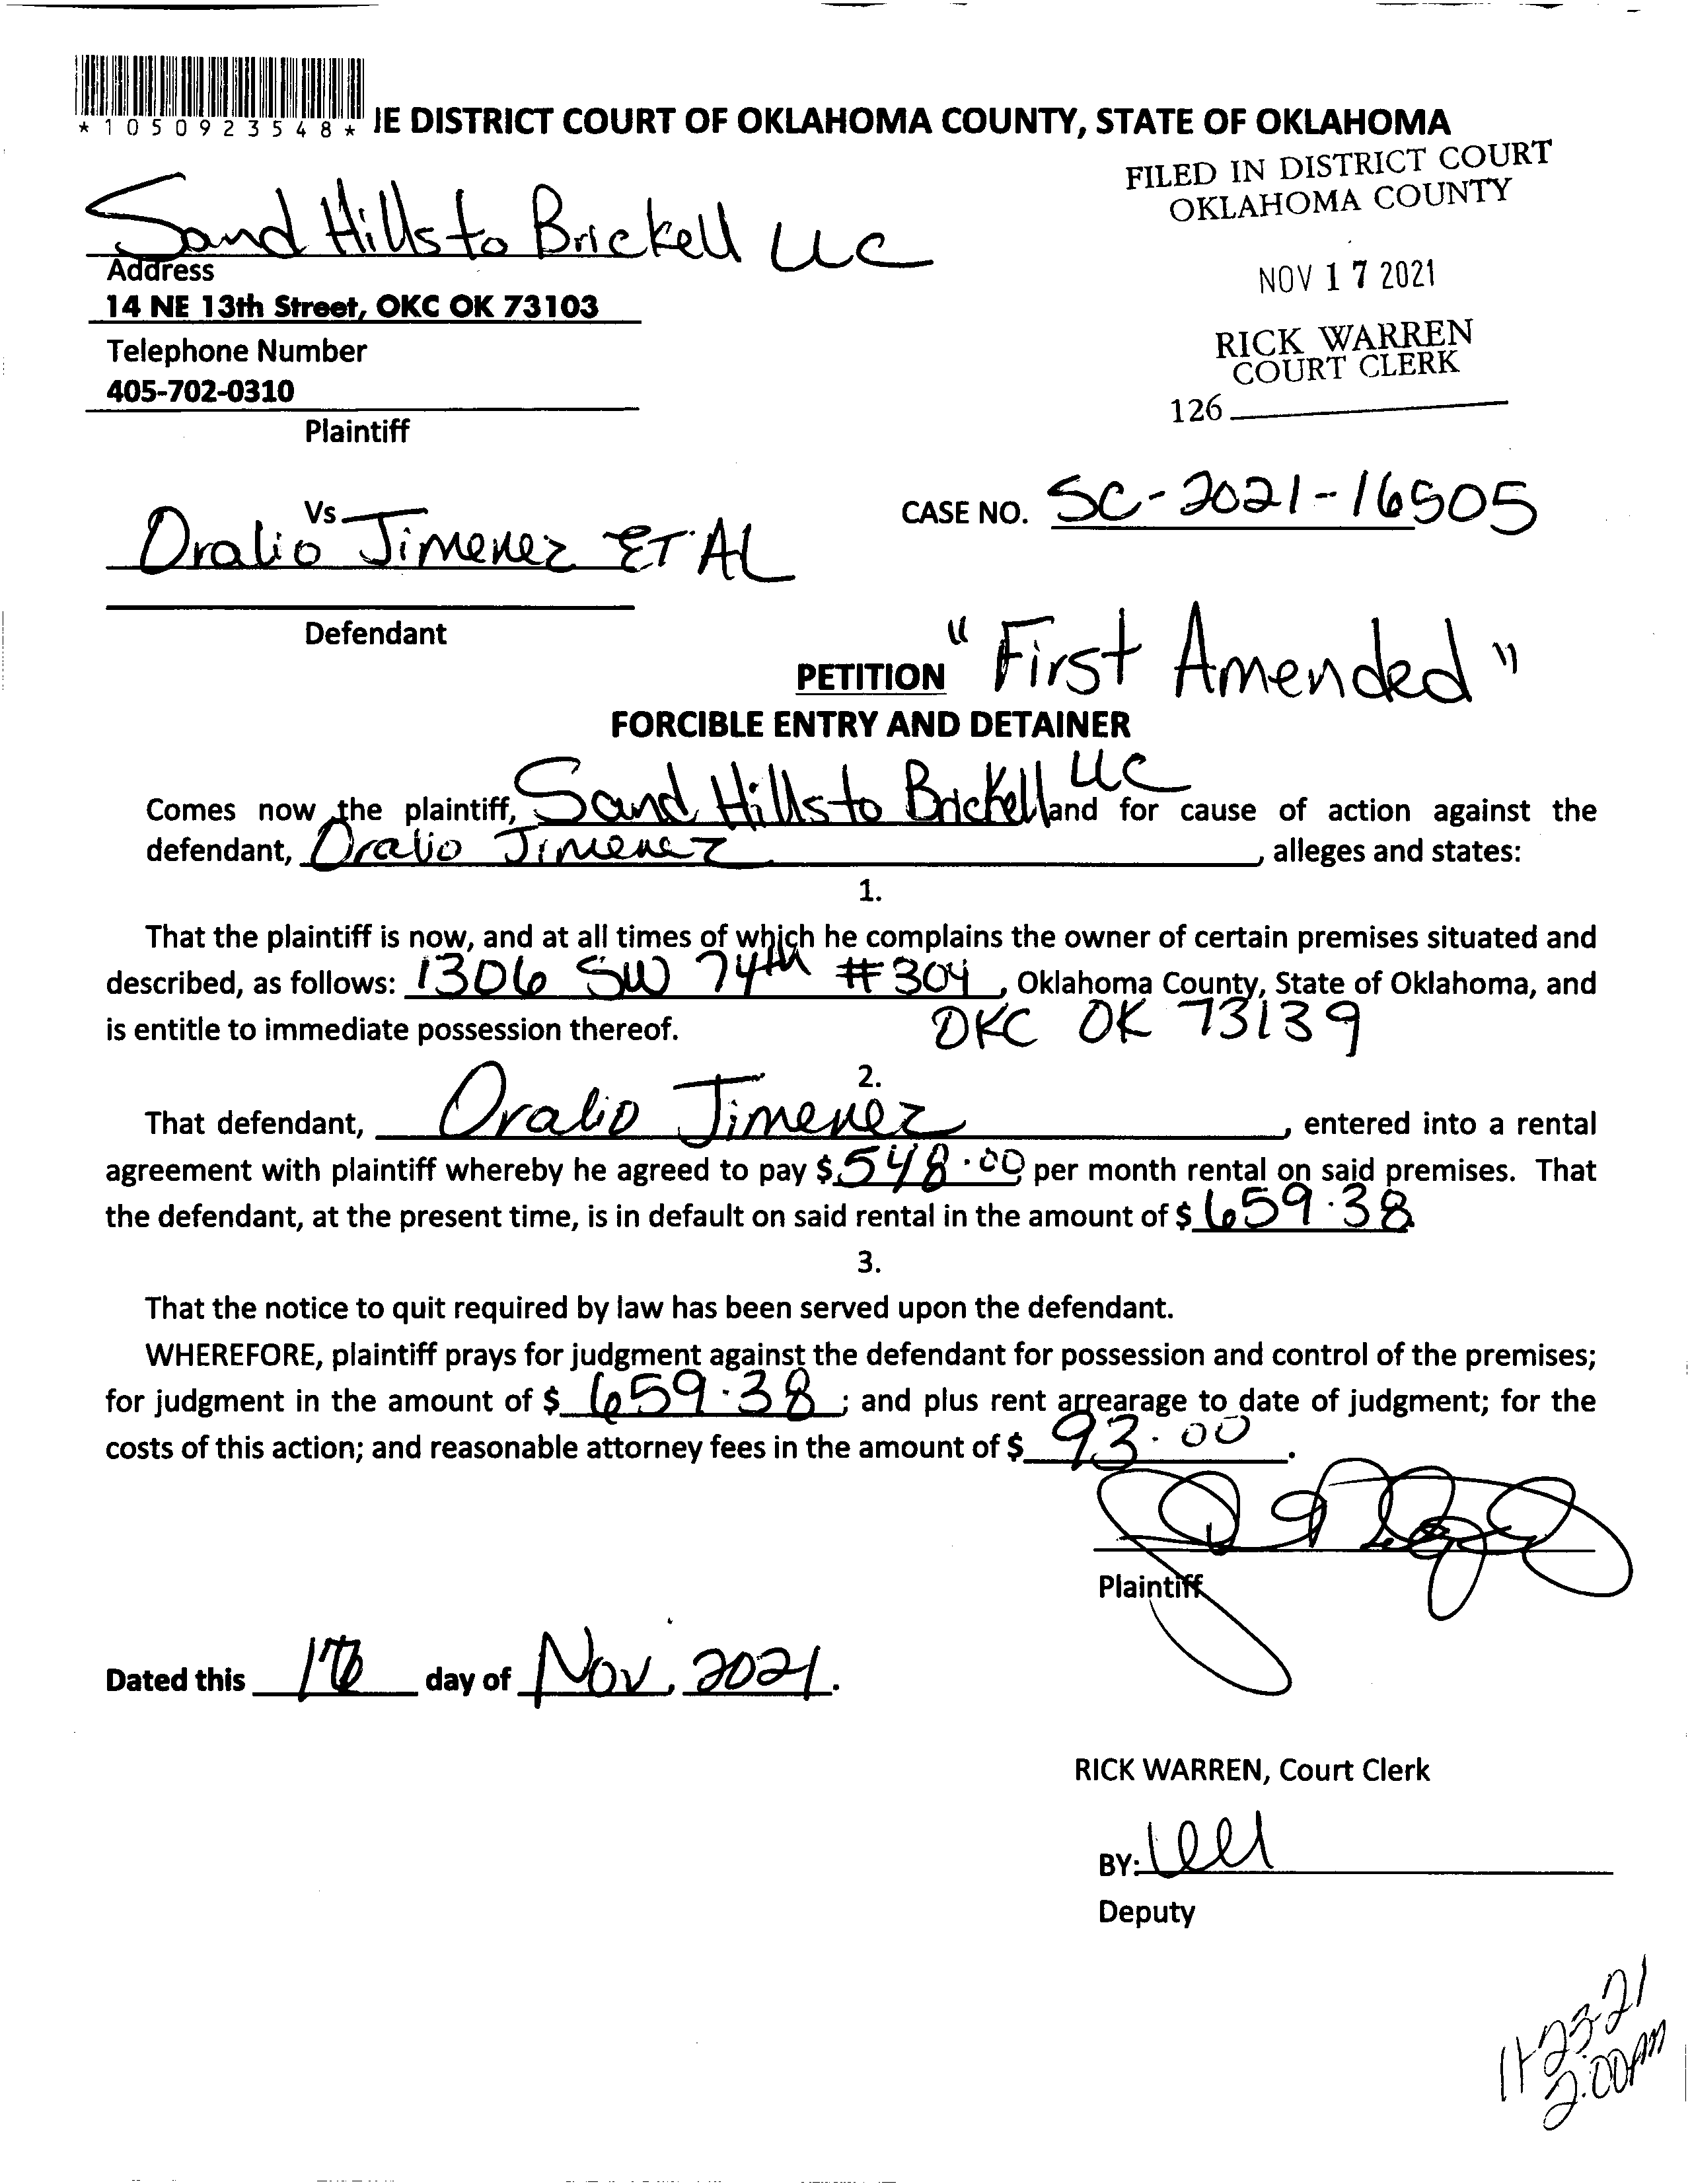 *1050923548* IE DISTRICT COURT OF OKLAHOMA COUNTY, STATE OF OKLAHOMA
FILED IN DISTRICT COURT
OKLAHOMA COUNTY
NOV 17 2021
RICK WARREN
COURT CLERK
126
Sand Hills to Brickell LLC
Address
14 NE 13th Street, OKC OK 73103
Telephone Number
405-702-0310
Plaintiff
Vs
Oralio Jimenez ET AL
CASE NO. SC-2021-16505
Defendant
PETITION "First Amended"
FORCIBLE ENTRY AND DETAINER
Comes now the plaintiff, Sand Hills to Brickell LLC and for cause of action against the
defendant, Oralio Jimenez, alleges and states:
1.
That the plaintiff is now, and at all times of which he complains the owner of certain premises situated and
described, as follows: 1306 SW 74th #304, Oklahoma County, State of Oklahoma, and
is entitle to immediate possession thereof. OKC OK 73139
2.
That defendant, Oralio Jimenez, entered into a rental
agreement with plaintiff whereby he agreed to pay $ 548.00 per month rental on said premises. That
the defendant, at the present time, is in default on said rental in the amount of $ 659.38
3.
That the notice to quit required by law has been served upon the defendant.
WHEREFORE, plaintiff prays for judgment against the defendant for possession and control of the premises;
for judgment in the amount of $ 659.38; and plus rent arrearage to date of judgment; for the
costs of this action; and reasonable attorney fees in the amount of $ 93.00.
Plaintiff
Dated this day of Nov, 2021.
RICK WARREN, Court Clerk
BY:
Deputy
11-23-21
2:00PM